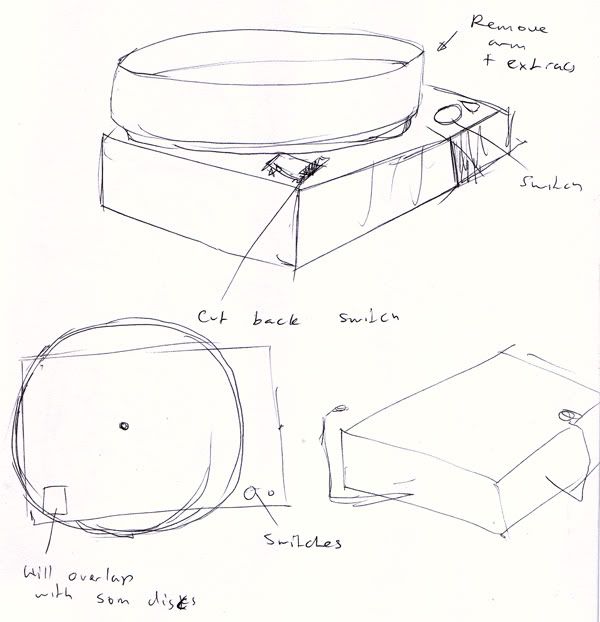 Remove
arm
+ extras
Switch
Cut back switch
Switches
Will overlap
with som discs